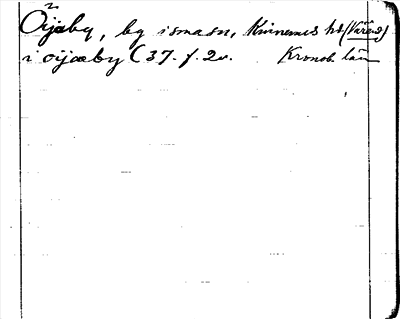 Öijaby, by i smasn, Kinnemes hd (Värend)
i öijæby (37. f. 2v. Kronob. län